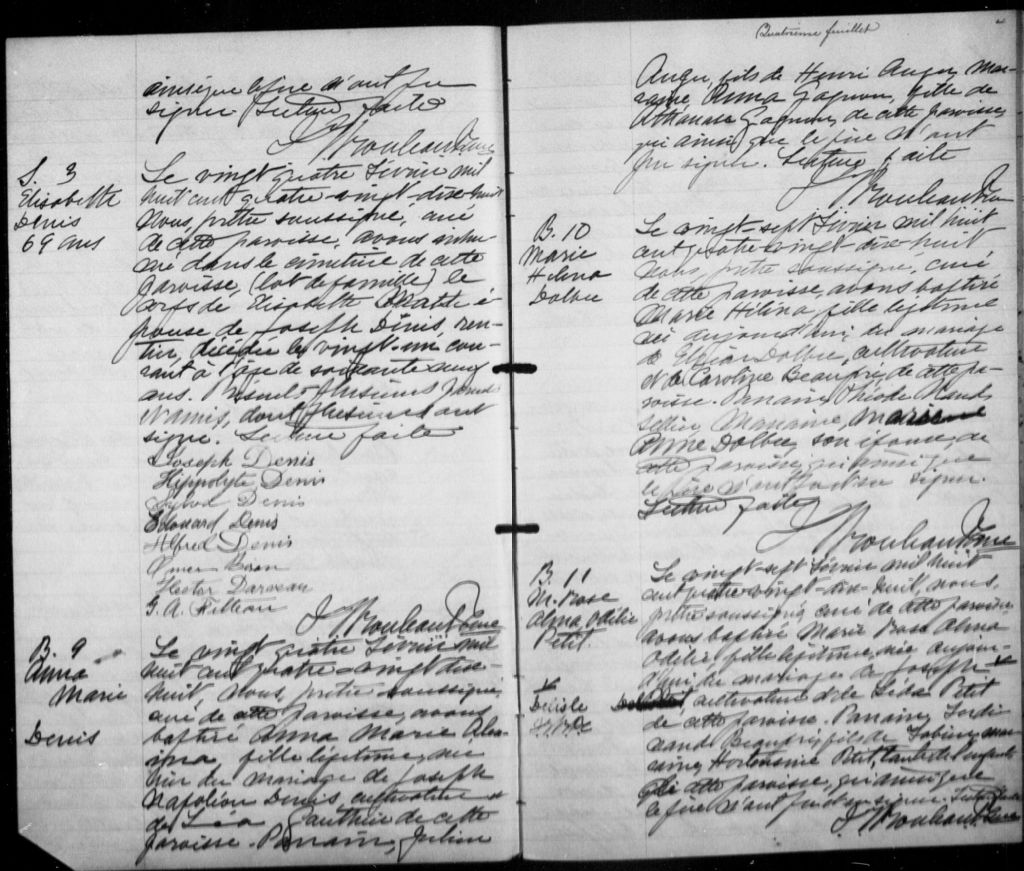 ainsi que le père n'ont pu
signer Lecture faite
J Rouleau Ptre
S. 3
Elisabette
Denis
69 ans
Le vingt quatre Février mil
huit cent quatre-vingt-dix-huit
Nous, prêtre soussigné, curé
de cette paroisse, avons inhu
mé dans le cimetière de cette
paroisse, (lot de famille) le
corps de Elisabette é
pouse de Joseph Denis, ren-
tier, décédée le vingt-un cou-
rant à l'âge de soixante neuf
ans. Présents plusieurs parents
et amis, dont plusieurs ont
signé. Lecture faite
Joseph Denis
Hippolyte Denis
Sylva Denis
Edouard Denis
Alfred Denis
Omer
Hector Darveau
G. A.
J Rouleau Ptre
B. 9
Anna
Marie
Denis
Le vingt quatre Février mil
huit cent quatre-vingt dix-
huit Nous, prêtre soussigné,
curé de cette paroisse, avons
baptisé Anna Marie
fille légitime, née
hier du mariage de Joseph
Napoléon Denis, cultivateur et
de Léa Gauthier de cette
paroisse. Parrain, Julien
Quatrième feuillet
Auger, fils de Henri Auger, Mar-
raine, Anna Gagnon, fille de
Athanase Gagnon, de cette paroisse
qui ainsi que le père n'ont
pu signer. Lecture faite
J Rouleau Ptre
B. 10
Marie
Helina
Dolbec
Le vingt-sept Février mil huit
cent quatre-vingt-dix-huit
Nous, prêtre soussigné, curé
de cette paroisse, avons baptisé
Marie Hélina, fille légitime
née aujourd'hui, du mariage
de Dolbec, cultivateur
et de Caroline Beaupré, de cette pa-
roisse. Parrain,
Marraine, Marie
Anne Dolbec, son épouse, de
cette paroisse, qui ainsi que
le père n'ont pu signer.
Lecture faite
J Rouleau Ptre
B. 11
M. Rose
Alma, Odélie
Petit.
Delisle
Le vingt-sept Février mil huit
cent quatre-vingt-dix-huit, nous,
prêtre soussigné, curé de cette paroisse
avons baptisé Marie Rose Alma
Odélie, fille légitime, née aujour-
d'hui, du mariage de Joseph
cultivateur et de Léda Petit
de cette paroisse. Parrain, Ferdi
nand Beaupré, fils de mar
raine, Hortensine Petit, tante de l'enfant
de cette paroisse, qui ainsi que
le père n'ont pu signer. Lecture faite
J Rouleau Ptre